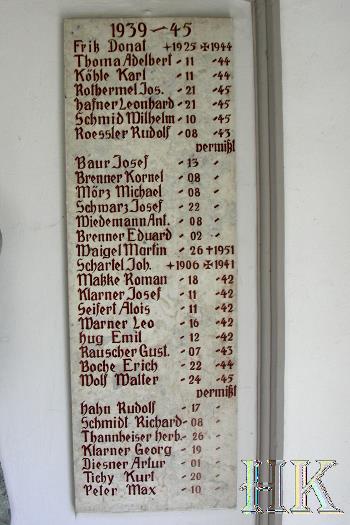 1939-45
Fritz Donat +1925 ✠1944
Thoma Adelbert - 11 -44
Köhle Karl - 11 -44
Rothermel Jos. - 21 -45
Hafner Leonhard - 21 -45
Schmid Wilhelm - 10 -45
Roessler Rudolf - 08 -43
vermißt
Baur Josef - 13 -
Brenner Kornel - 08 -
März Michael - 08 -
Schwarz Josef - 22 -
Wiedemann Ant. - 08 -
Brenner Eduard - 02 -
Waigel Martin - 26 +1951
Scharfel Joh. +1906 ✠1941
Matzke Roman - 18 -42
Klarner Josef - 11 -42
Seifert Alois - 11 -42
Warner Leo - 16 -42
Hug Emil - 12 -42
Rauscher Gust. - 07 -43
Boche Erich - 22 -44
Wolf Walter - 24 -45
vermißt
Hahn Rudolf - 17 -
Schmidt Richard - 08 -
Thannheiser Herb. - 26 -
Klarner Georg - 19 -
Diesner Artur - 01 -
Tichy Kurt - 20 -
Peter Max - 10 -
HK